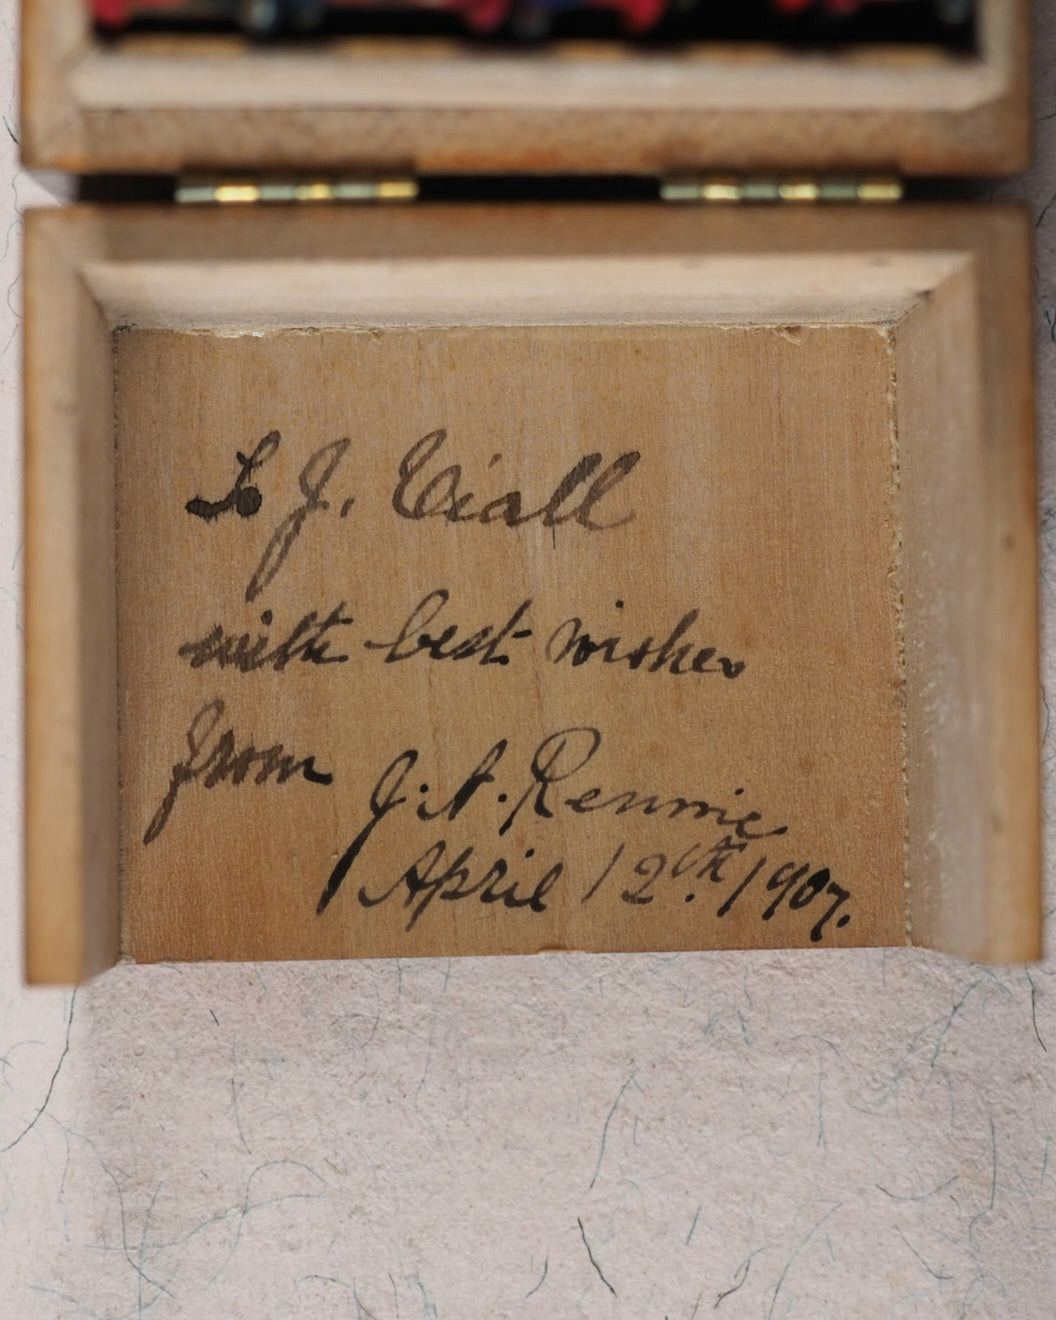 To J. Viall
with best wishes
from
J. A. Rennie
April 12th. 1907.